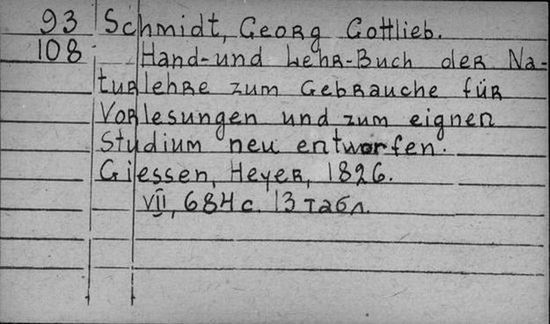 93 Schmidt, Georg Gottlieb.
108 Hand- und Lehr-Buch der Na-
turlehre zum Gebrauche für
Vorlesungen und zum eignen
Studium neu entworfen.
Giessen, Heyer, 1826.
VII, 684 с. 13 табл.